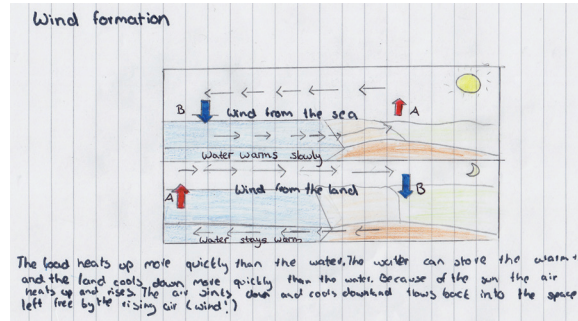 Wind formation
B Wind from the sea A
Water warms slowly
Wind from the land
A B
Water stays warm
The load heats up more quickly than the water. The water can store the warmt
and the land cools down more quickly than the water. Because of the sun the air
heats up and rises. The air sinks down and cools down and flows back into the space
left free by the rising air (wind!)